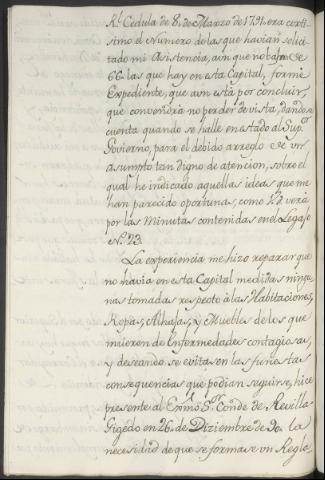 Rl. Cedula de 8,, de Marzo de 1791. era certi-
simo el Numero de las que havian solici-
tado mi Asistencia, aun que no bajan de
66,, las que hay en esta Capital, formé
Expediente, que aun está por concluir,
que convendria no perder de vista, dando
cuenta quando se halle en estado al Supor.
Govierno, para el debido arreglo de un
asumpto tan digno de atencion, sobre el
qual he indicado aquellas ideas que me
han parecido oportunas, como V.E. verá
por las Minutas contenidas en el Legajo
No. 23.
La experiencia me hizo reparar que
no havia en esta Capital medidas ningu-
nas tomadas respeto á las Habitaciones,
Ropas, Alhajas, y Muebles de los que
mueren de Enfermedades contagiosas,
y deseando se eviten las funestas
consequencias que podian seguirse, hice
presente al Exmo. Sor. Conde de Revilla
Gigedo en 26,, de Diziembre de 90. la
necesidad de que se formase un Regla-